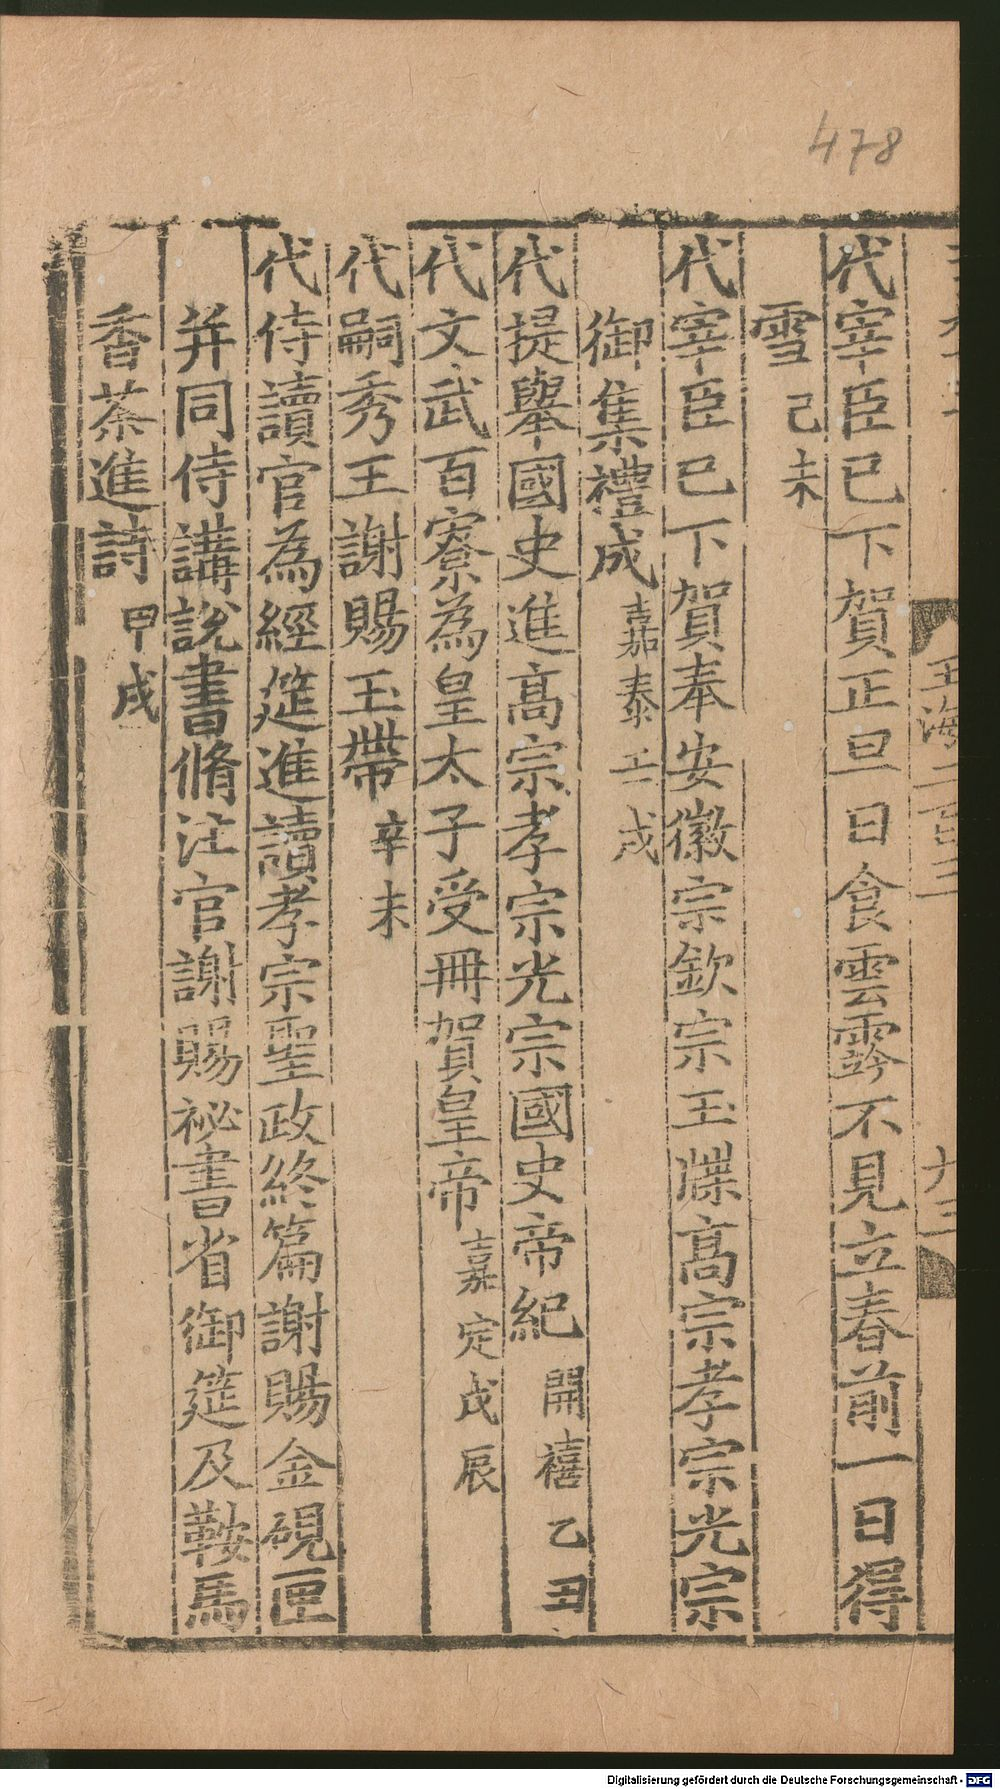 478
玉海二百三
代宰臣已下賀正旦日食雲霠不見立春前一日得
雪己未
代宰臣已下賀奉安徽宗欽宗玉牒高宗孝宗光宗
御集禮成嘉泰壬戌
代提舉國史進高宗孝宗光宗國史帝紀開禧乙丑
代文武百寮為皇太子受冊賀皇帝嘉定戊辰
代嗣秀王謝賜玉帶辛未
代侍讀官為經筵進讀孝宗聖政終篇謝賜金硯匣
并同侍講說書脩注官謝賜祕書省御筵及鞍馬
香茶進詩甲戌
Digitalisierung gefördert durch die Deutsche Forschungsgemeinschaft - DFG